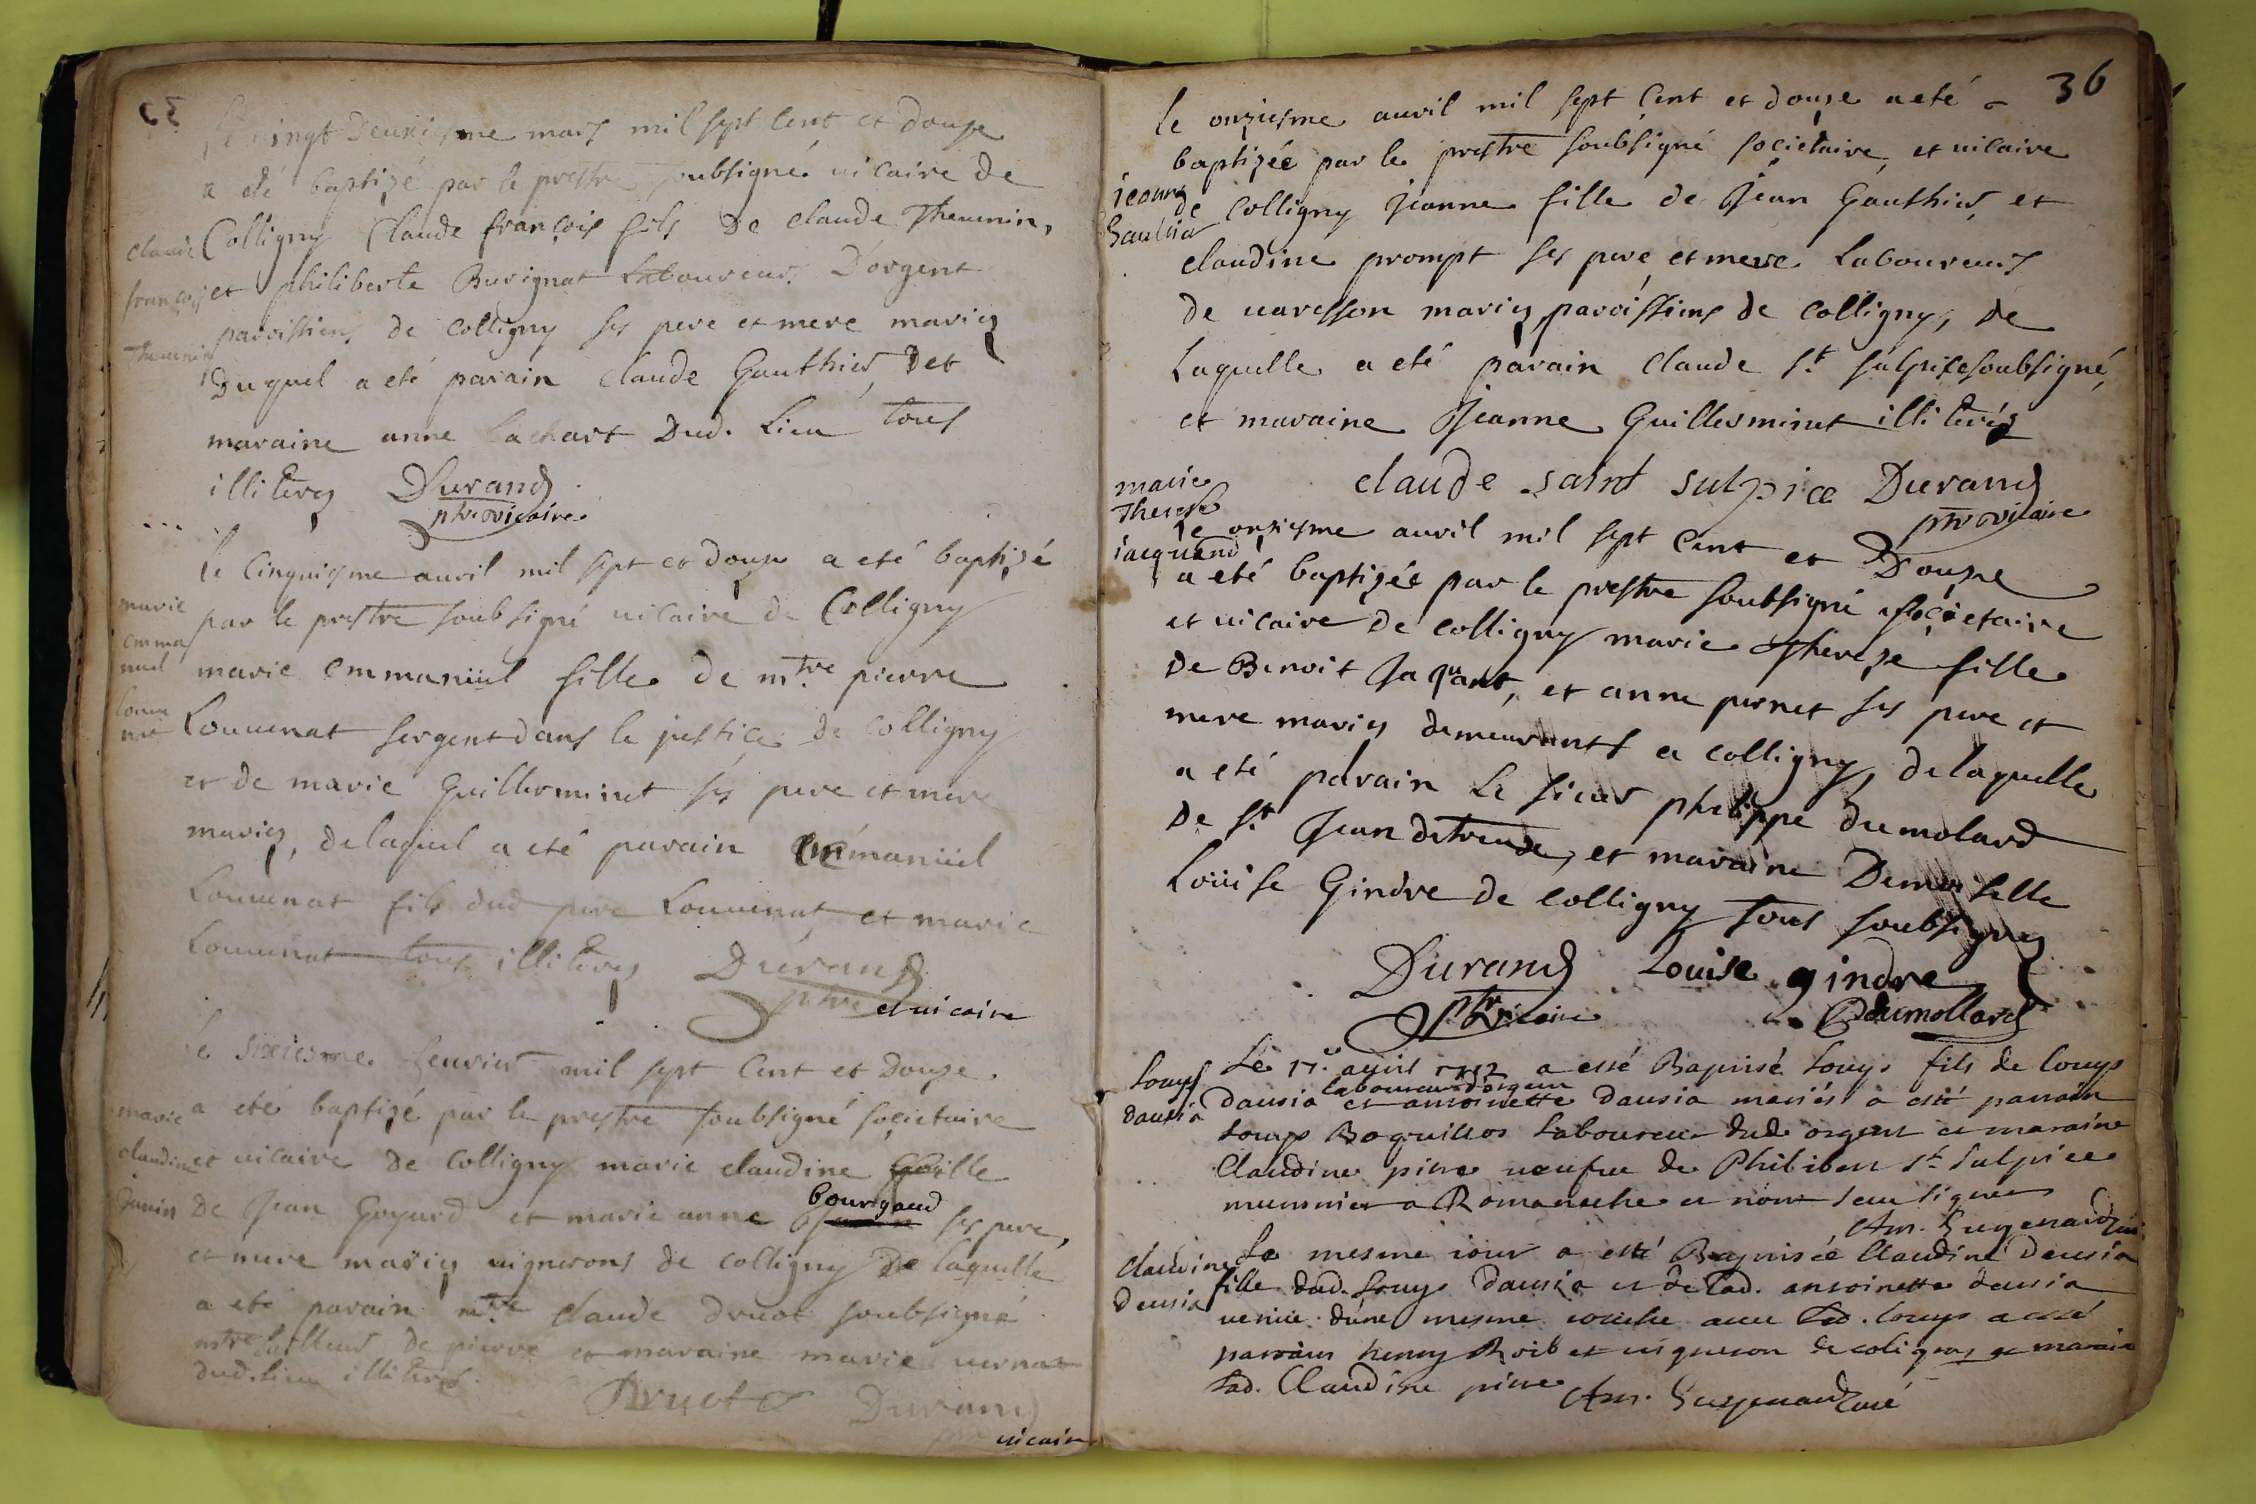 Le vingt Deuxiesme mars mil sept Cent et douse
a eté baptizé par le prestre soubsigné uicaire de
claude Colligny Claude françois fils De claude Theuenin,
françois et philiberte Burignat Laboureur D'orgent
paroissiens de Colligny ses pere et mere mariez
Theuenin Duquel a eté parain claude Gauthier, Det
maraine anne Lachart Dud. Lieu tous
illiterez Durand
ptre vicaire
Le Cinquiesme auril mil sept et douse a eté baptizé
marie par le prestre soubsigné uicaire de Colligny
emma
nuel marie emmanüel fille de mtre pierre
Louue
nat Louuenat sergent dans la justice de Colligny
et de marie Guillerminet ses pere et mere
mariez, de laquel a eté parain emmanüel
Louuenat fils dud pere Louuenat et marie
Louuenat tous illiterez Durand
ptre et uicaire
Le sixiesme feurier mil sept Cent et Douse
marie a eté baptizé par le prestre soubsigné societaire
claudine et uicaire de Colligny marie claudine fille
de Jean Goyard et marie anne bourgaud ses pere,
et mere mariez uignerons de colligny De laquelle
a eté parain mtre claude druot soubsigné
mtre tailleur de pierre et maraine marie uernat
dud. lieu illiterez.
Druot Durand
uicaire
36
le onziesme auril mil sept Cent et douze a eté
baptizée par le prestre soubsigné societaire, et uicaire
jeanne
Gauthier de Colligny Jeanne fille de Jean Gauthier, et
claudine prompt ses pere et mere Laboureurs
de uaresson mariez paroissiens de Colligny, de
Laquelle a eté parain Claude St sulpice soubsigné,
et maraine Jeanne Guillerminet illiterez
claude saint sulpice Durand
ptre vicaire
marie
Therese
jacquand
Le onziesme auril mil sept Cent et Douze
a eté baptizée par le prestre soubsigné societaire
et uicaire de colligny marie Thereze fille
De Benoit Jaquand, et anne pernet ses pere et
mere mariez demeurants a colligny, de laquelle
a eté parain Le sieur philippe dumolard
De St Jean detreux, et maraine Demoiselle
Loüise Gindre de colligny tous soubsignez
Durand Louise gindre
ptre vicaire Pdumollard
Louys
dausia
Le 17e auril 1712 a esté Baptisé Louys fils de Louys
laboureur d'orgent
dausia et antoinette dausia mariés a esté parrain
Louys Boguillos Laboureur dud. orgent et maraine
Claudine pirre ueufue de Philibert St Sulpice
meusnier a Romaneche et n'ont sceu signer
Am. Guyenard curé
Claudine
Deusia
Le mesme iour a esté Baptisée Claudine Deusia
fille dud. Louys Dausia et de lad. antoinette deusia
uenüe d'une mesme couche auec led. Louys a esté
parrain henry Roibet uigneron de coligny et maraine
lad. Claudine pirre
Am. Guyenard curé